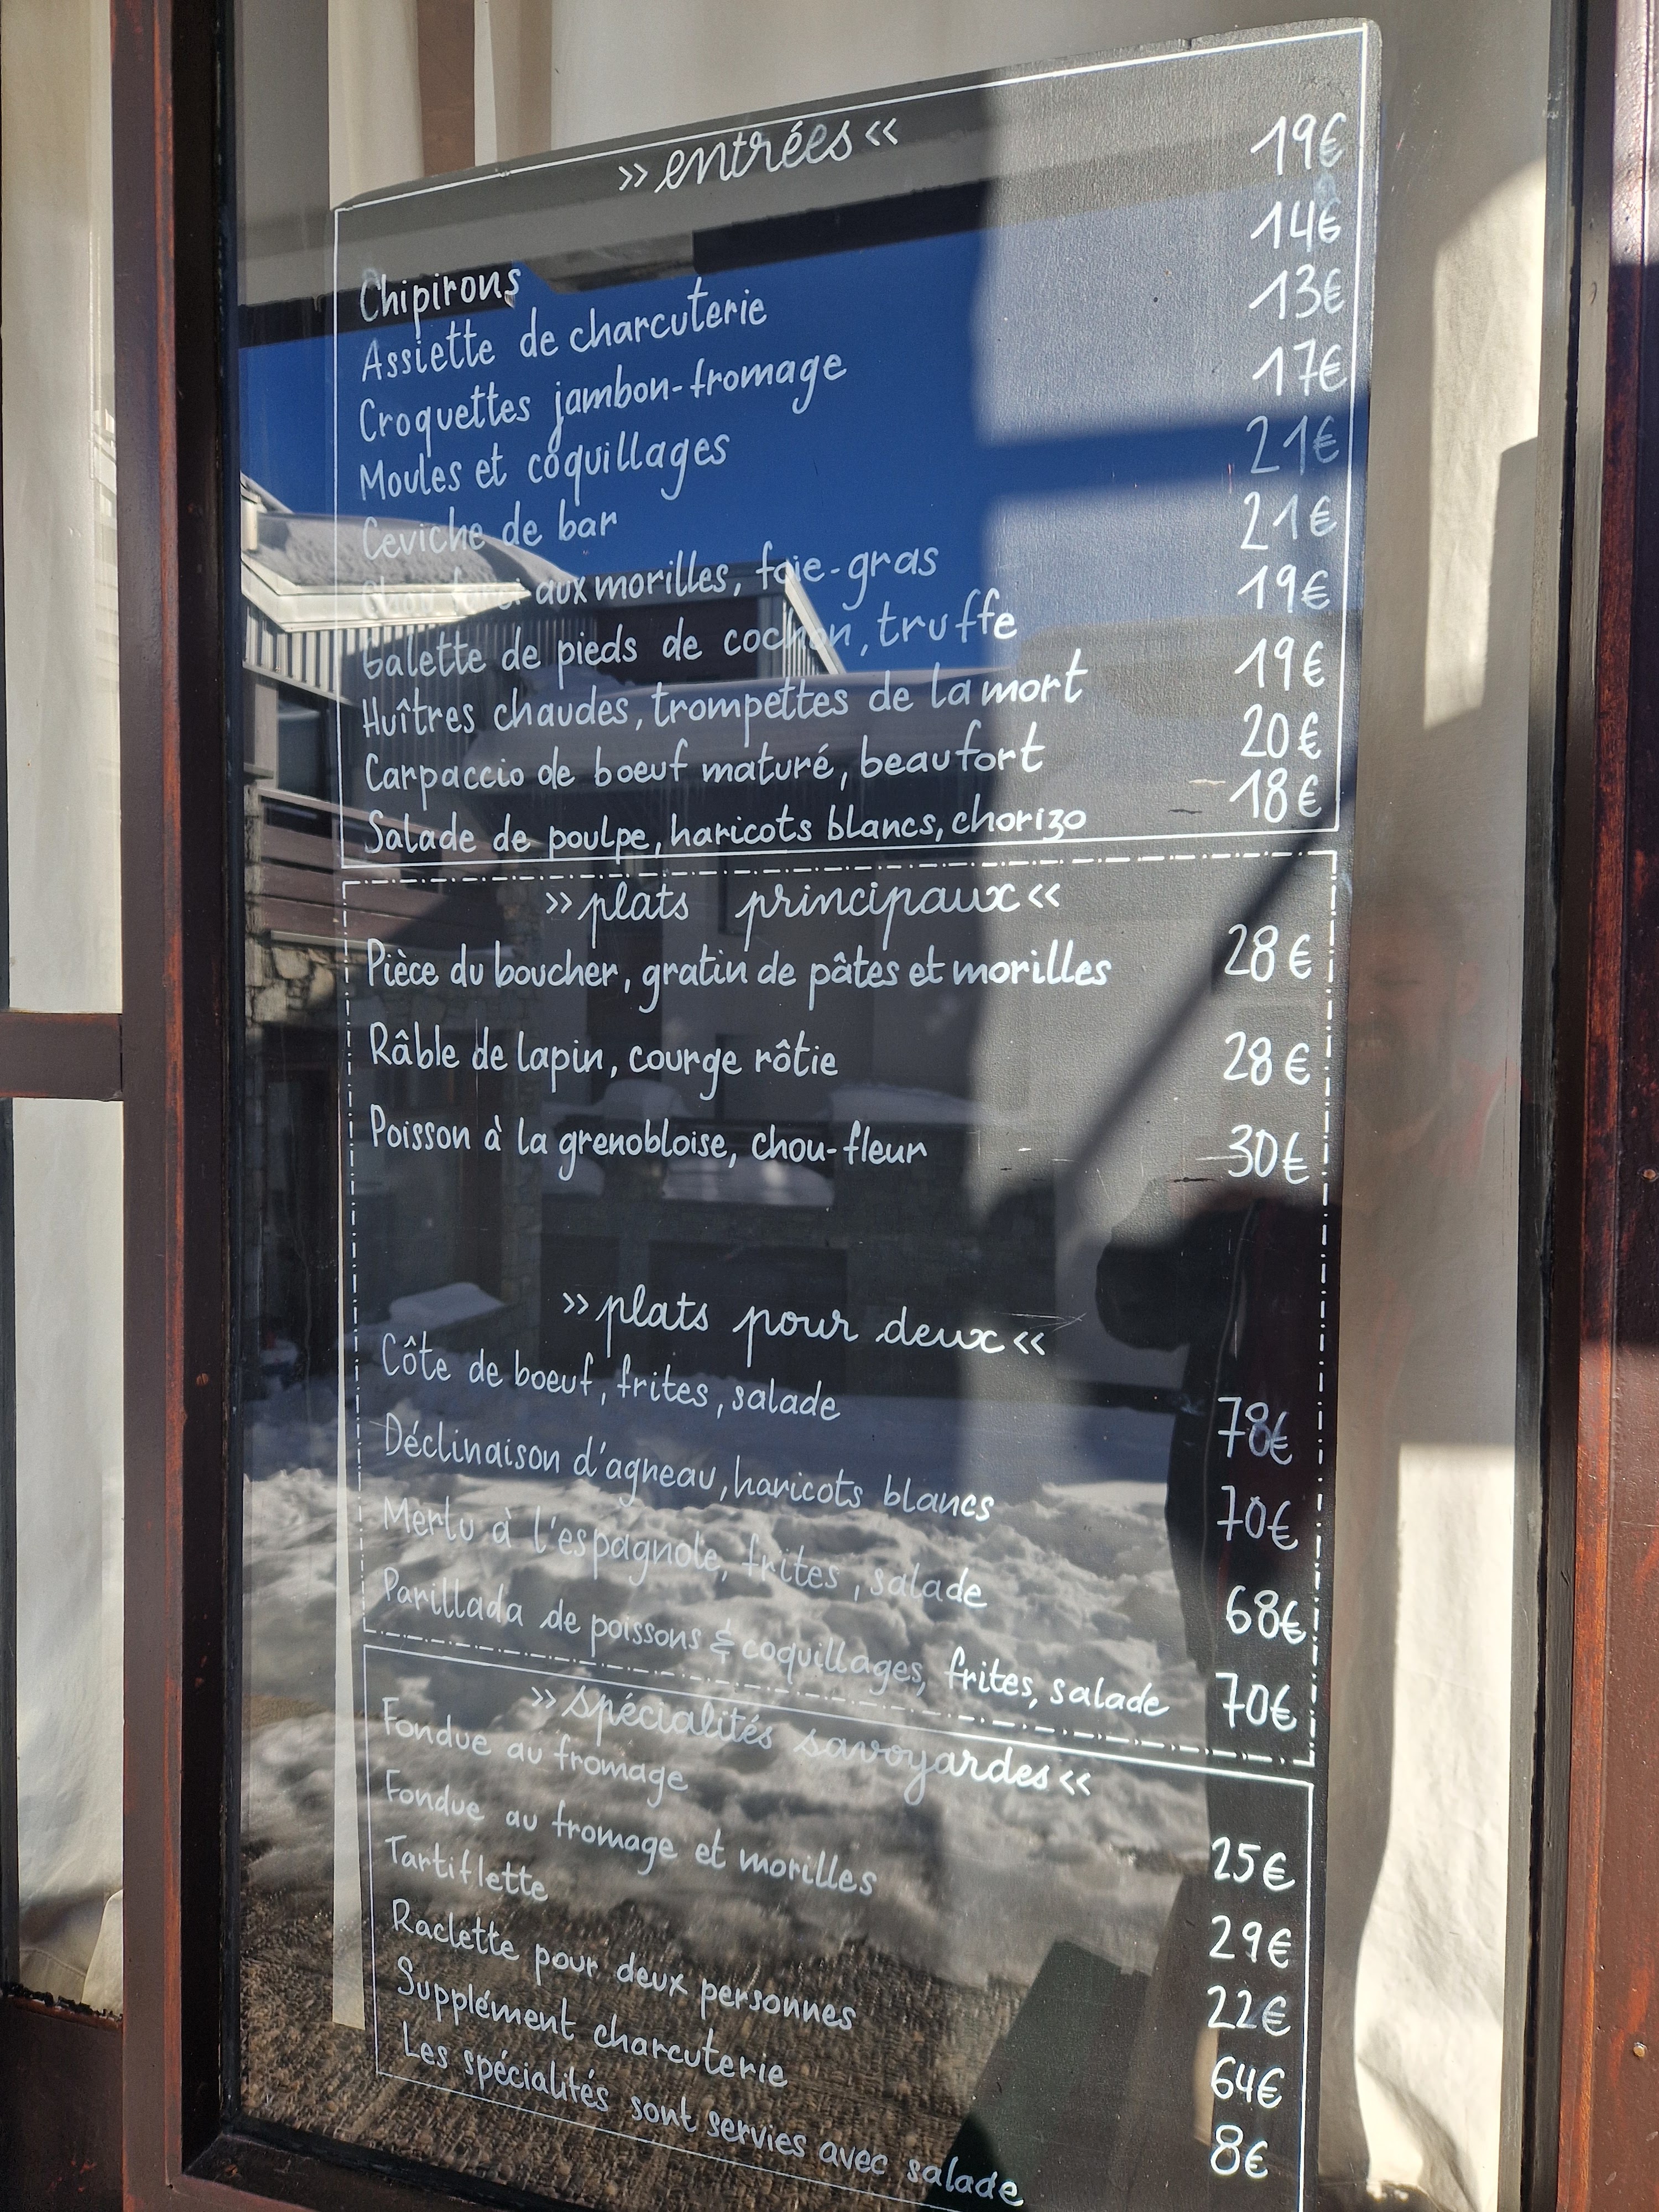 »entrées«
Chipirons 19€
Assiette de charcuterie 14€
Croquettes jambon-fromage 13€
Moules et coquillages 17€
Ceviche de bar 21€
aux morilles, foie-gras 21€
Galette de pieds de cochon, truffe 19€
Huîtres chaudes, trompettes de la mort 19€
Carpaccio de boeuf maturé, beaufort 20€
Salade de poulpe, haricots blancs, chorizo 18€
»plats principaux«
Pièce du boucher, gratin de pâtes et morilles 28€
Râble de lapin, courge rôtie 28€
Poisson à la grenobloise, chou-fleur 30€
»plats pour deux«
Côte de boeuf, frites, salade 78€
Déclinaison d'agneau, haricots blancs 70€
Merlu à l'espagnole, frites, salade 68€
Parillada de poissons & coquillages, frites, salade 70€
»spécialités savoyardes«
Fondue au fromage 25€
Fondue au fromage et morilles 29€
Tartiflette 22€
Raclette pour deux personnes 64€
Supplément charcuterie 8€
Les spécialités sont servies avec salade